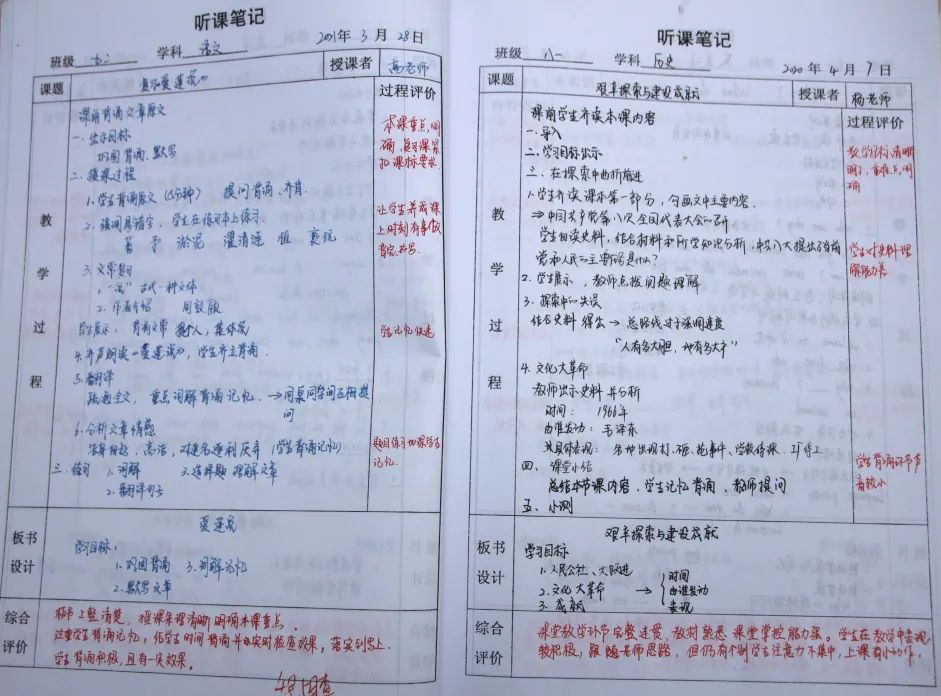 听课笔记
班级 七二 学科 语文 2021年 3 月 28 日
课题 复习爱莲说 授课者 高老师
教学过程
过程评价
课前背诵文章原文
一、学习目标
巩固背诵、默写
二、授课过程
1. 学生背诵原文 (5分钟) 提问背诵、齐背.
2. 强调易错字, 学生在练习本上练习.
蕃 予 淤泥 濯清涟
3. 文常复习
1. “说” 古代一种文体
2. 作者介绍 周敦颐
学生展示: 背诵文常 集体
4. 齐声朗读《爱莲说》, 学生齐立背诵.
5. 翻译
疏通全文, 重点词解背诵记忆. →同桌间互相提问
6. 分析文章情感
洁身自好、高洁, 对追名逐利厌弃 (学生背诵记忆)
三. 练习 1. 词解 3. 选择题 理解文章
2. 翻译句子
本课重点, 明确, 复习课紧扣课标要求.
让学生养成课上时刻有事做
题目练习
记忆.
板书设计
爱莲说
学习目标:
1. 巩固背诵 3. 词解记忆
2. 默写文章
综合评价
板书工整清楚, 授课条理清晰明确本课重点.
注重学生背诵记忆, 给学生时间背诵并及时检查效果, 落实到写上.
学生背诵积极, 且有一定效果.
听课笔记
班级 八一 学科 历史 2020 年 4 月 7 日
课题 艰辛探索与建设成就 授课者 杨老师
教学过程
过程评价
课前学生齐读本课内容
一、导入
二、学习目标出示
三、在探索中曲折前进
1. 学生齐读课本第一部分, 勾画文中主要内容.
⇒中国共产党第八次全国代表大会召开
学生自读史料, 结合材料和所学知识分析, 中共八大提出了当前
党和人民的主要任务是什么?
2. 学生展示, 教师点拨问题理解
3. 探索中的失误
结合史料 得出 → 总路线过于强调速度
“人有多大胆, 地有多大产”
4. 文化大革命
教师出示史料并分析
时间: 1966年
由谁发动: 毛泽东
其具体表现: 学校停课、工厂停工
四、课堂小结
总结本节课内容, 学生记忆背诵, 教师提问
五、小测
教学目标清晰明了, 重难点明确
学生对史料理解能力差.
学生背诵环节声音较小
板书设计
艰辛探索与建设成就
学习目标
1. 人民公社、大跃进
2. 文化大革命 → 时间 由谁发动 表现
3. 成就
综合评价
课堂教学环节完整连贯, 教材熟悉 课堂掌控能力强. 学生在教学中表现
较积极, 跟随老师思路, 但仍有个别学生注意力不集中, 上课有小动作.